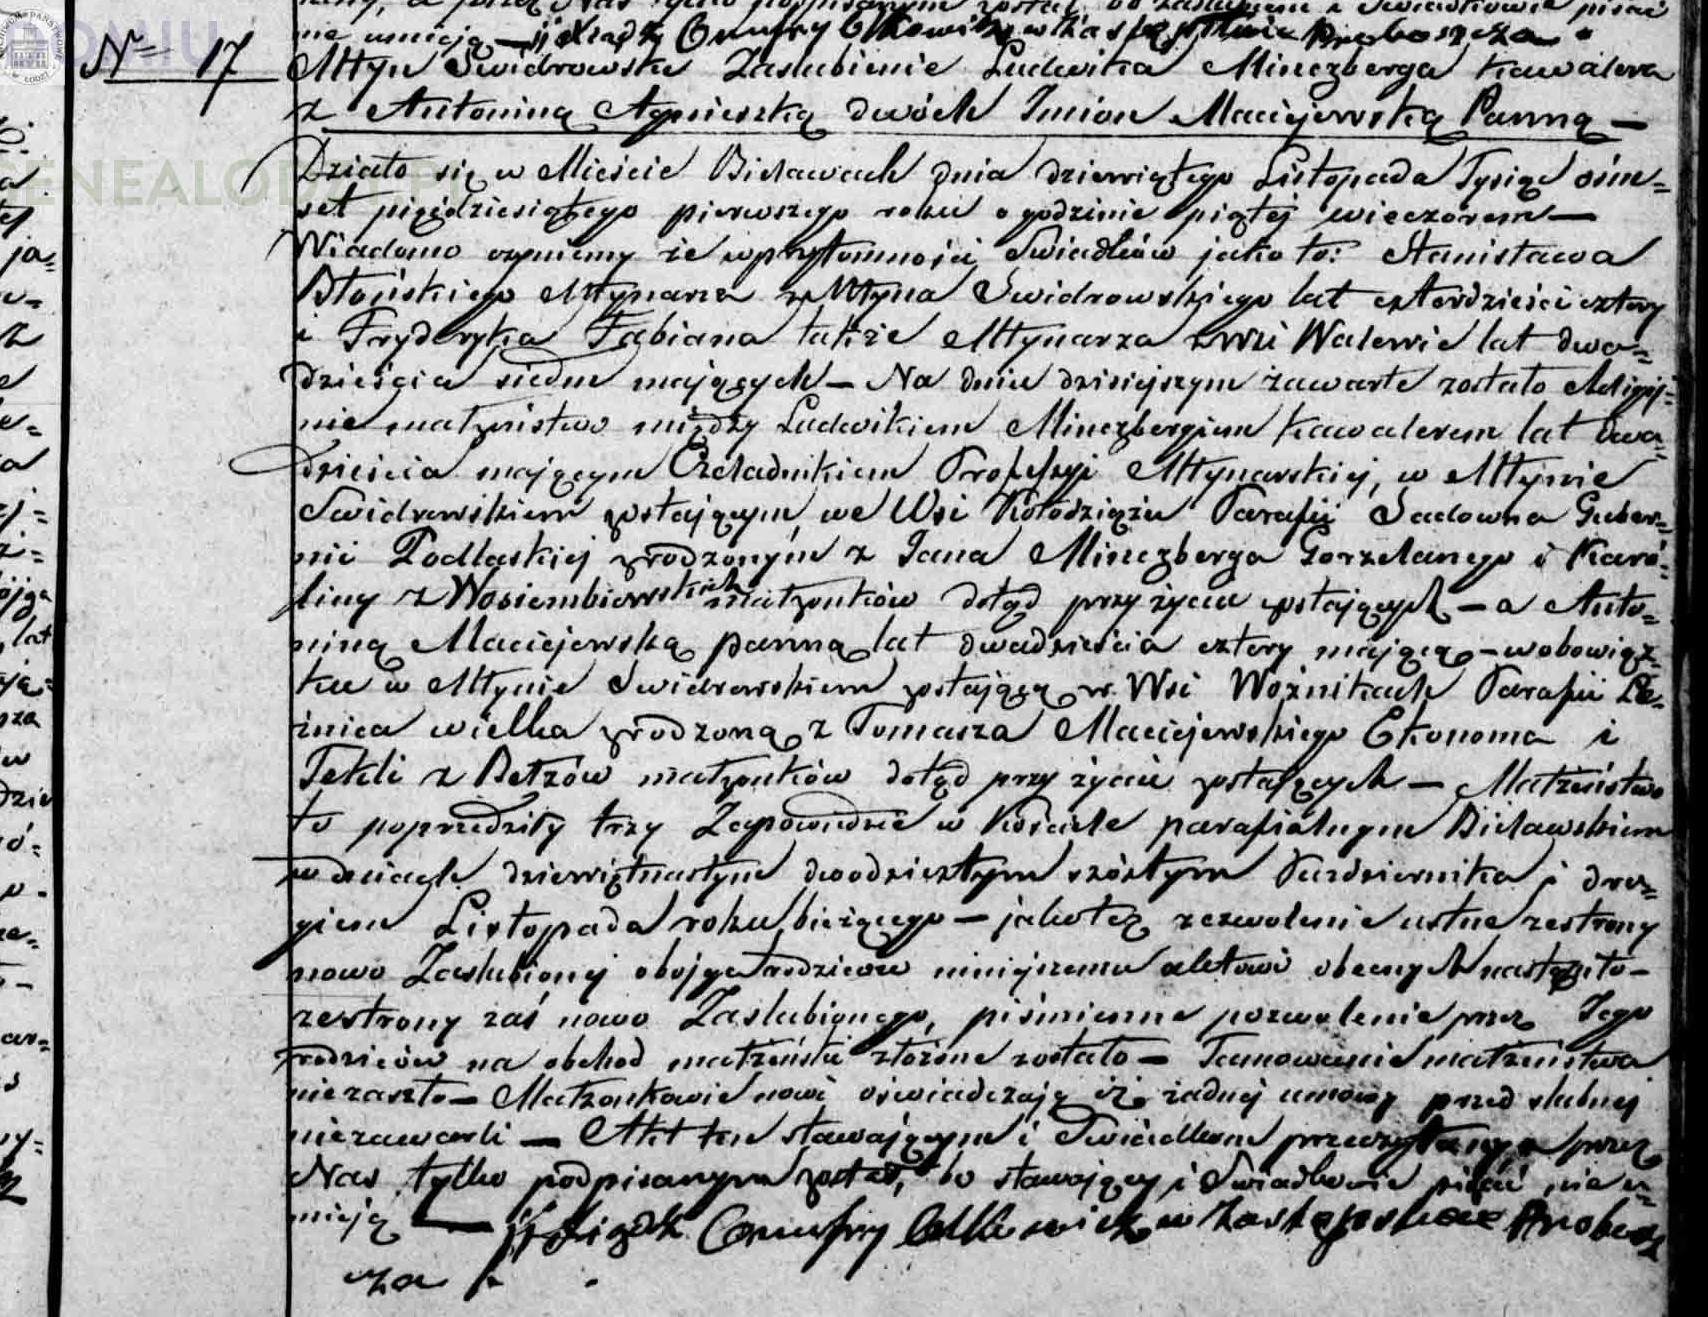 nie umieją — X Xiądz Onufry w Zastępstwie Proboszcza.
Nº 17
Młyn Swidrowski Zaslubienie Ludwika Minczberga Kawalera
z Antoniną Agnieszką dwóch Imion Maciejewską Panną —
Działo się w Mieście Bielawach dnia dziewiątego Listopada Tysiąc ośm=
set piędziesiątego pierwszego roku o godzinie piątej wieczorem —
Wiadomo czyniemy że w przytomności Swiadków jako to: Stanisława
Błońskiego Młynarza z Młyna Swidrowskiego lat czterdzieści cztery
i Fryderyka Fabiana także Młynarza z wsi Walewic lat dwa=
dzieścia siedm mających — Na dniu dzisiejszym zawarte zostało Religij=
nie małżeństwo między Ludwikiem Minczbergiem Kawalerem lat dwa=
dzieścia mającym Czeladnikiem Professyi Młynarskiej, w Młynie
Swidrowskiem zostającym, we Wsi Kołodziążu Parafii Sadowna Guber=
nii Podlaskiej zrodzonym z Jana Minczberga Gorzelanego i Karo=
liny z małżonków dotąd przy życiu zostających — a Anto=
niną Maciejewską panną lat dwadzieścia cztery mającą — w obowiąz=
ku w Młynie Swidrowskiem zostającą w Wsi Woźnikach Parafii Łę=
żnica wielka zrodzoną z Tomasza Maciejewskiego Ekonoma i
Tekli z Betzów małżonków dotąd przy życiu zostających — Małżeństwo
to poprzedziły trzy Zapowiedzie w Kościele parafialnym Bielawskiem
w dniach dziewiętnastym dwodziestym szóstym Października i dru=
giem Listopada roku bieżącego — jako też zezwolenie ustne ze strony
nowo Zaslubionej obojga rodziców niniejszemu aktowi obecnych nastąpiło —
ze strony zaś nowo Zaslubionego, piśmienne pozwolenie przez Jego
rodziców na obchod małżeński złożone zostało — Tamowanie małżeństwa
nie zaszło — Małżonkowie nowi oświadczają iż żadnej umowy przed slubnej
nie zawarli — Akt ten stawającym i Swiadkom przeczytany a przez
Nas tylko podpisanym został, bo stawający i Swiadkowie pisać nie u=
mieją — X Xiądz Onufry w Zastępstwie Probosz
cza